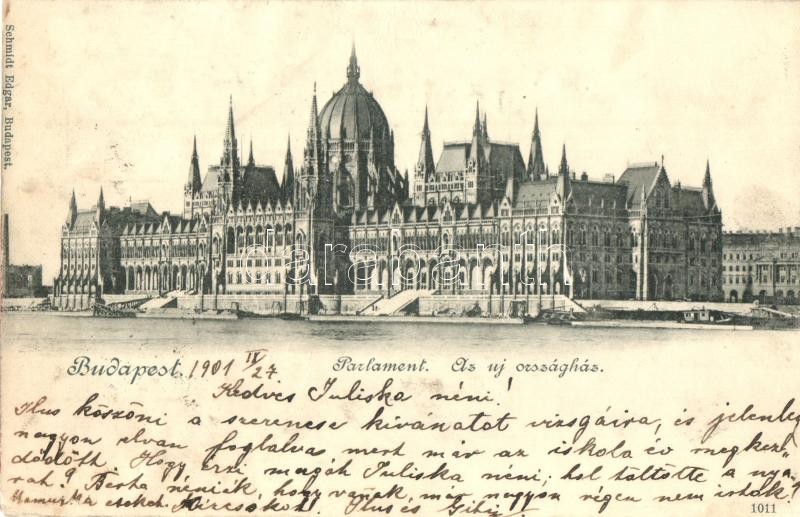 Schmidt Edgar, Budapest.
darabanth
Budapest. 1901 IV/27
Parlament. Az uj országház.
Kedves Juliska néni!
Ilus köszöni a szerencse kivánatot vizsgáira, és jelenleg
nagyon el van foglalva mert már az iskola év megkez„
dődött. Hogy érzi magát Juliska néni, hol töltötte a nya„
rat? Berta néniék, hogy vannak, már nagyon régen nem irtak?
csókol. Ilus és
1011